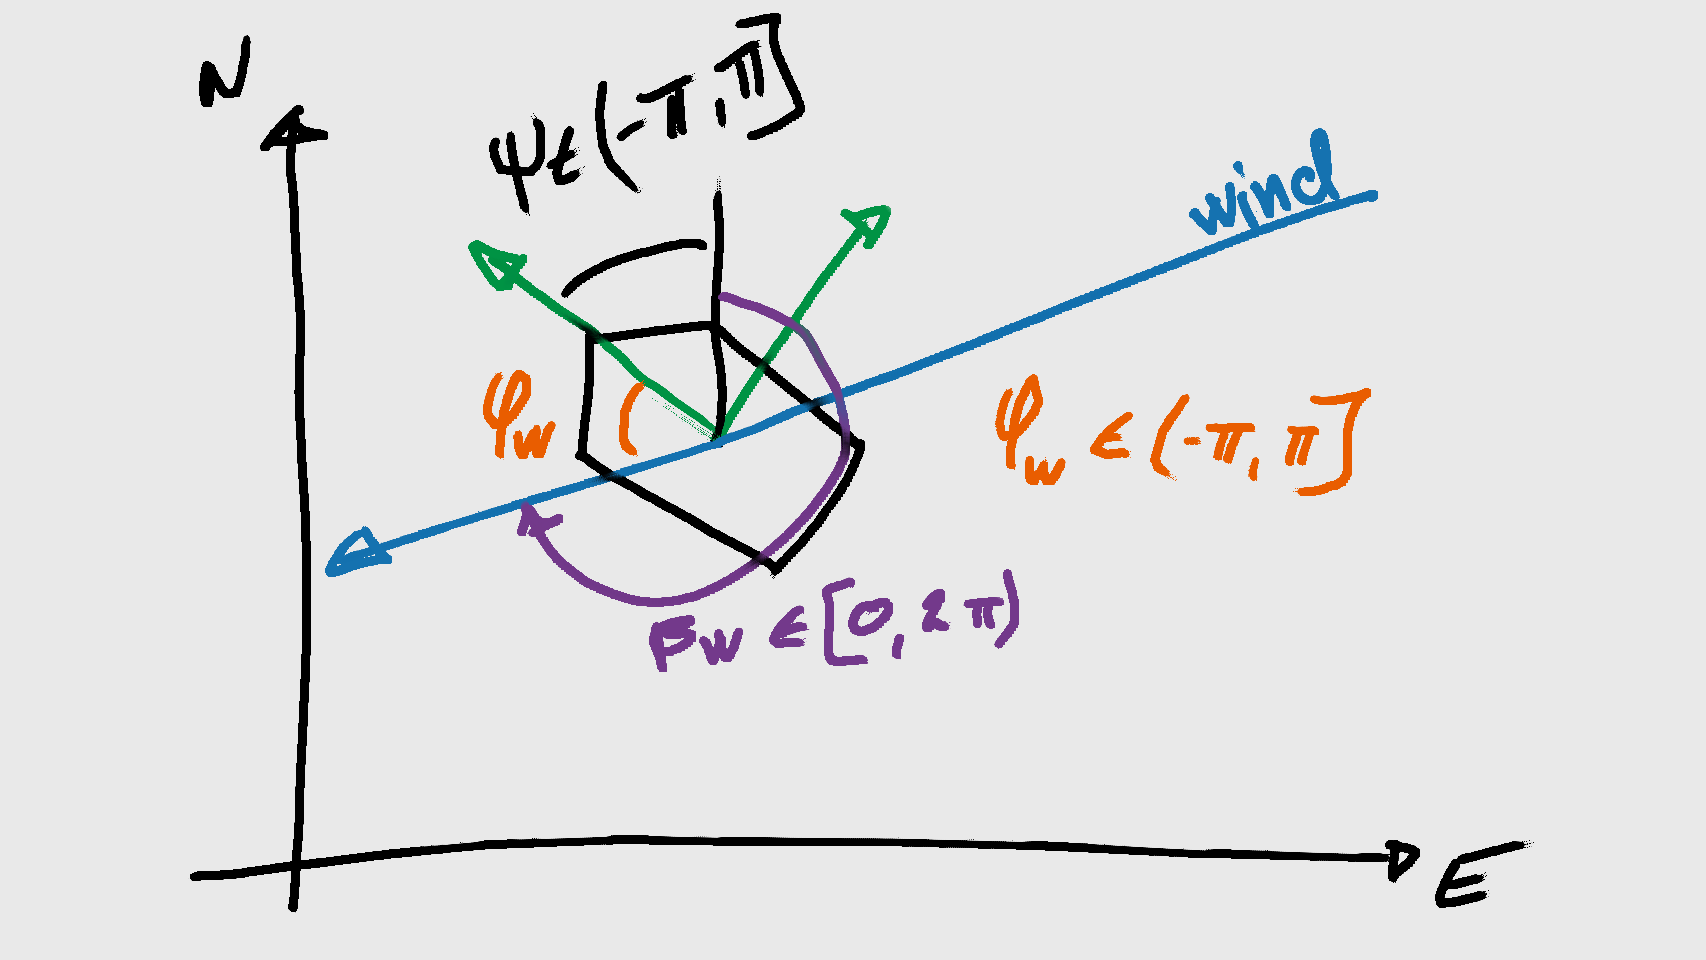 N
ψt (-π, π]
wind
φw
φw ∈ (-π, π]
βw ∈ [0, 2π)
E